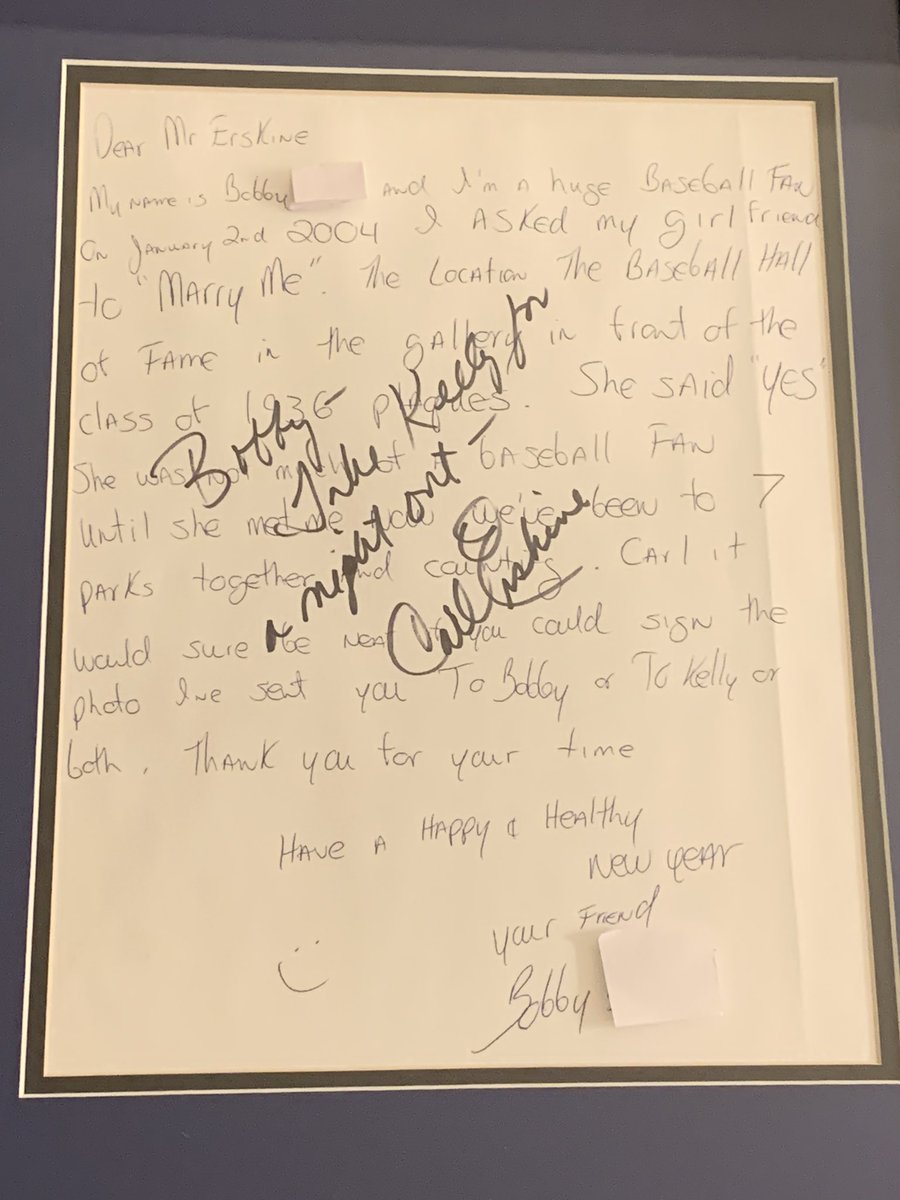 Dear Mr Erskine
My name is Bobby and I'm a huge Baseball Fan
On January 2nd 2004 I asked my girlfriend
to "Marry Me". The Location The Baseball Hall
of Fame in the gallery in front of the
class of 1936 plaques. She said "YES"
She was not much of a baseball fan
until she met me now we've been to 7
parks together and counting. Carl it
would sure be neat if you could sign the
photo I've sent you To Bobby or To Kelly or
both. Thank you for your time
Have a Happy & Healthy
New Year
Your Friend
Bobby
Bobby –
Take Kelly for
a night out –
Carl Erskine